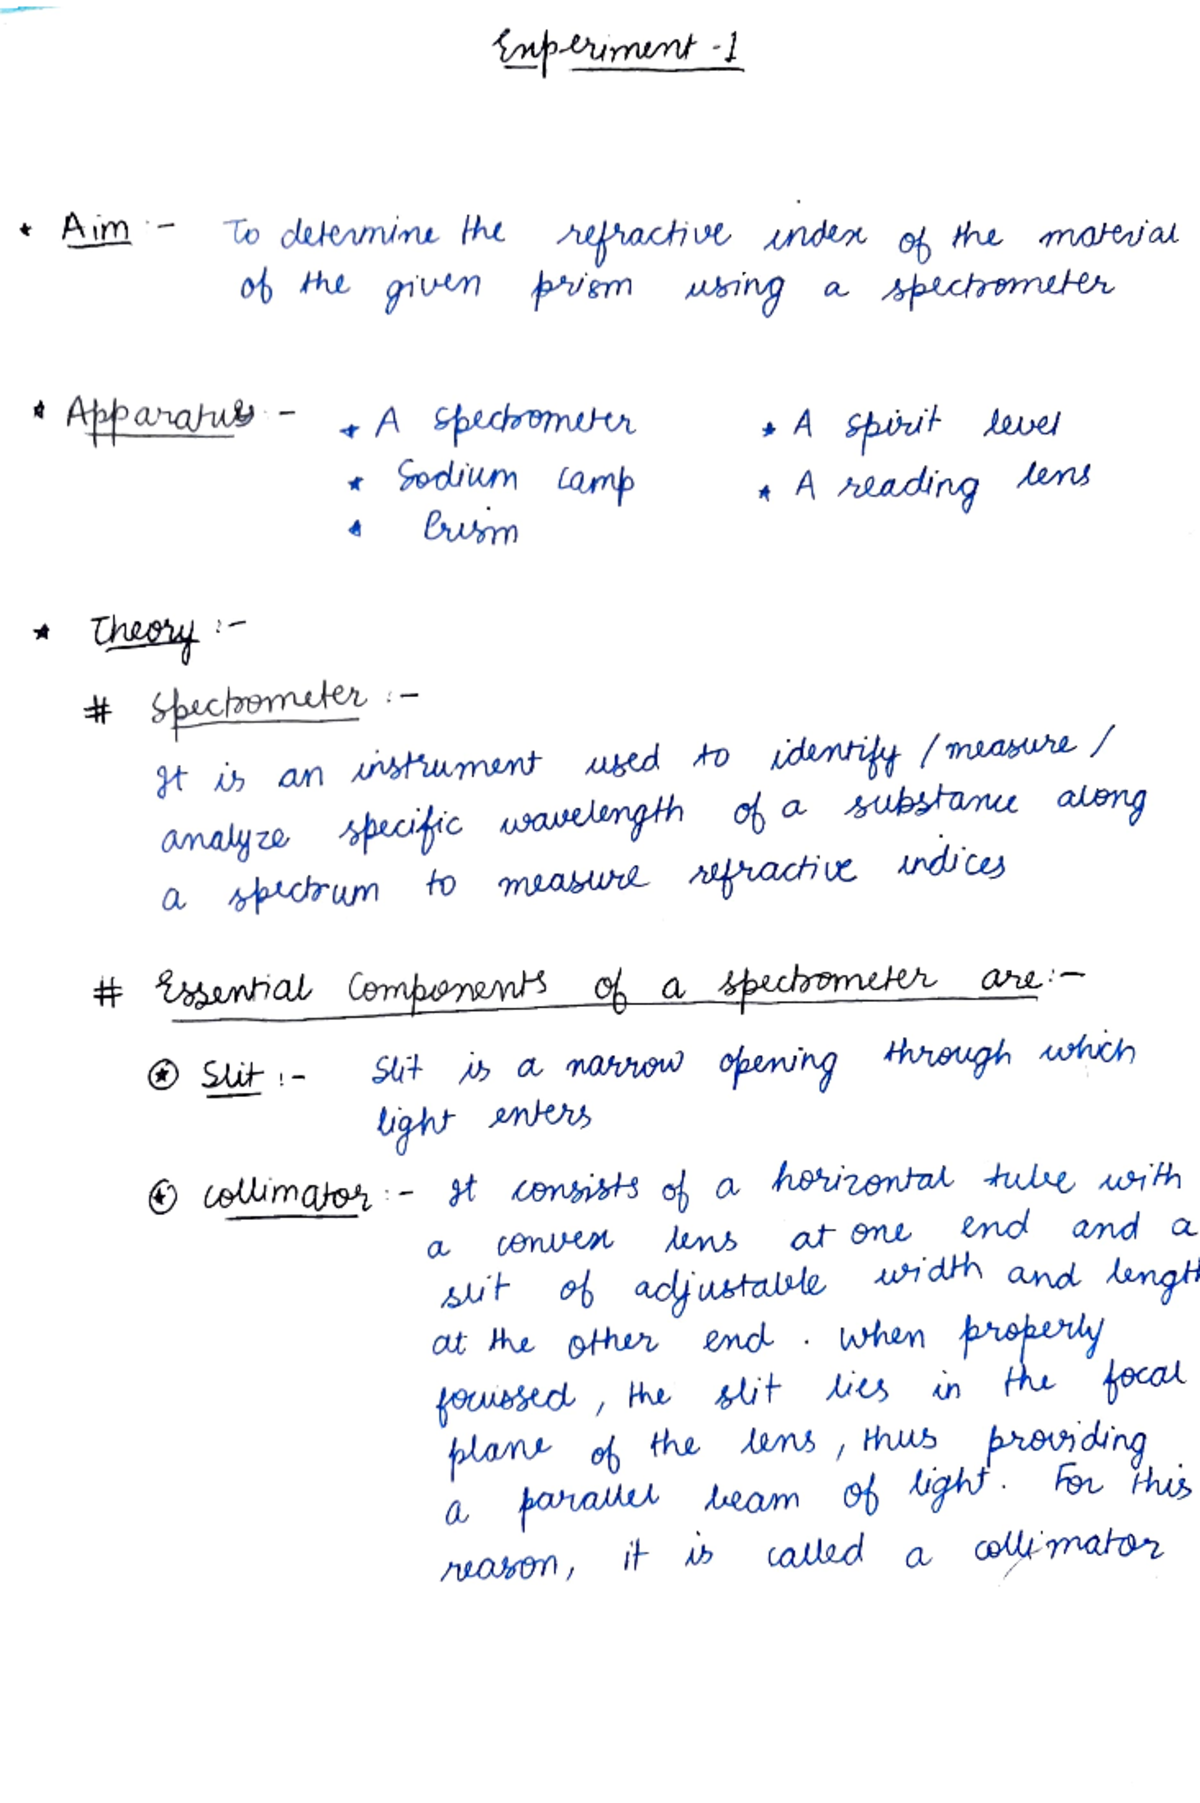 Experiment -1
* Aim :- To determine the refractive index of the material
of the given prism using a spectrometer
* Apparatus :- * A spectrometer * A spirit level
* Sodium lamp * A reading lens
* Prism
* Theory :-
# Spectrometer :-
It is an instrument used to identify / measure /
analyze specific wavelength of a substance along
a spectrum to measure refractive indices
# Essential Components of a spectrometer are:-
⍟ Slit :- Slit is a narrow opening through which
light enters
⍟ Collimator :- It consists of a horizontal tube with
a convex lens at one end and a
slit of adjustable width and length
at the other end . When properly
focussed , the slit lies in the focal
plane of the lens , thus providing
a parallel beam of light . For this
reason, it is called a collimator